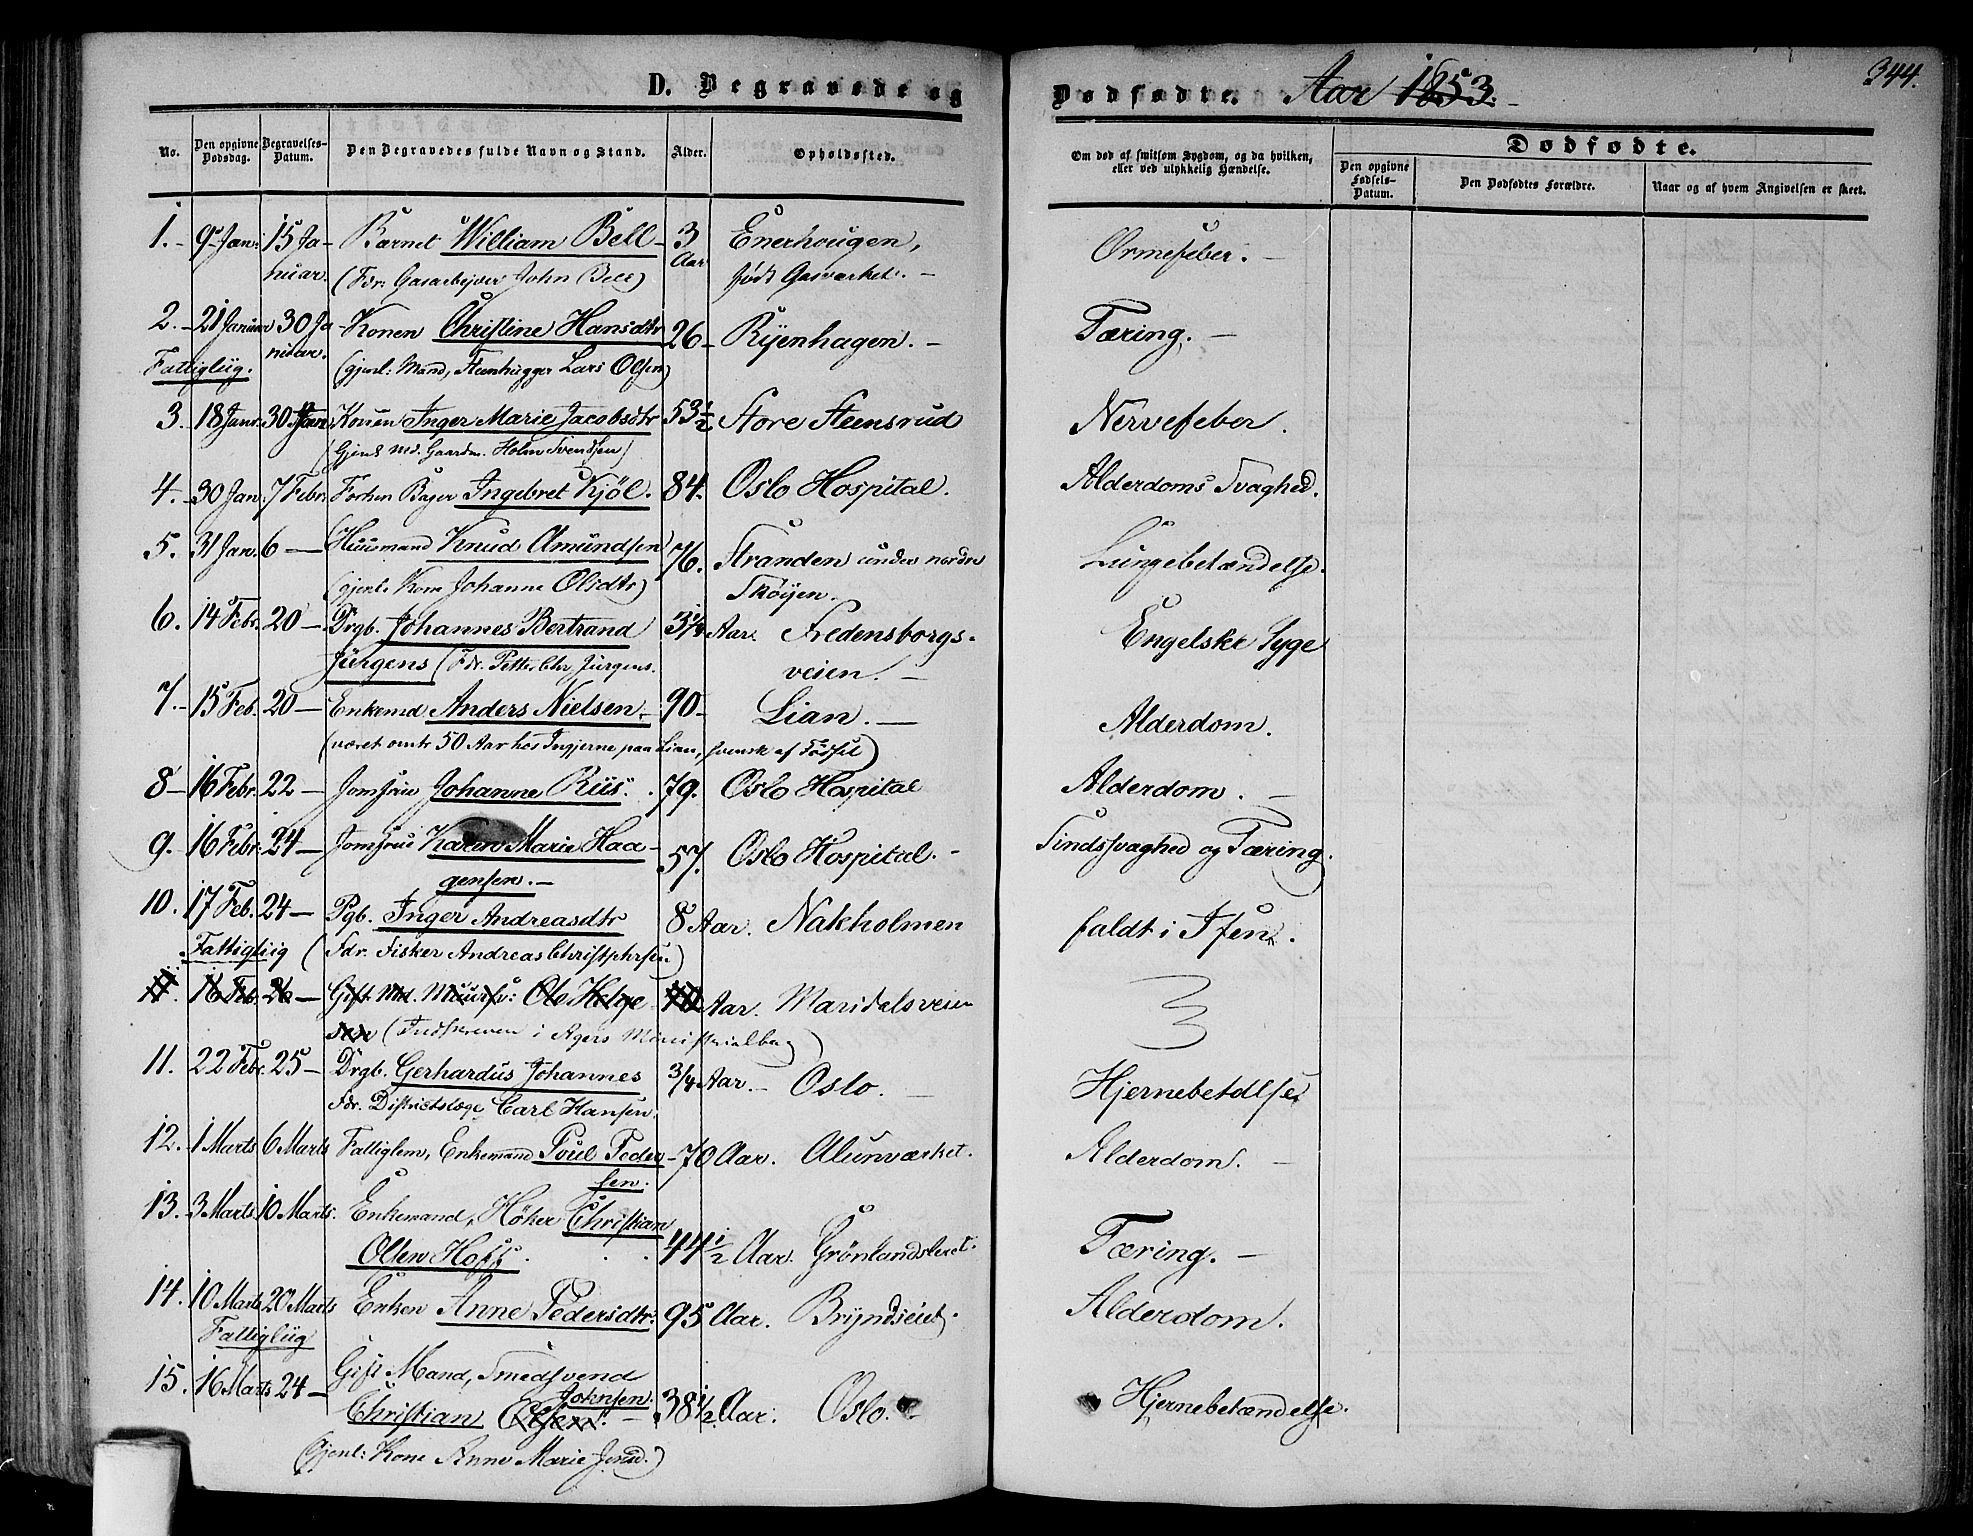 D. Begravede og Dødfødte. Aar 1853.
344.
No. Den opgivne Dødsdag. Begravelses-Datum. Den Begravedes fulde Navn og Stand. Alder. Opholdssted. Om død af smitsom Sygdom, og da hvilken, eller ved ulykkelig Hændelse.
Dødfødte.
Den opgivne Fødsels-Datum. Den Dødfødtes Forældre. Naar og af hvem Angivelsen er skeet.
1. 9 Jan: 15 Ja- Barnet William Bell 3 Enerhougen, Ormefeber.
nuar. (Fdr: Gasarbejder John Bell) Aar født Gasværket.
2. 21 Januar 30 Ja- Konen Christine Hansdtr 26 Ryenhagen. Tæring.
Fattiglig. nuar. (gjenl: Mand, Steenhugger Lars Olsen)
3. 18 Janr. 30 Janr Konen Inger Marie Jacobsdtr 53 1/2 Store Steensrud Nervefeber.
(Gjenl Md. Gaardm. Holm Svendsen)
4. 30 Jan. 7 Febr. Forhen Bager Ingebret Kjöl. 84. Oslo Hospital. Alderdoms Svaghed.
5. 31 Jan. 6 Huusmand Knud Amundsen 76. Stranden under nordre Lungebetændelse.
(gjenl. Kone Johanne Olsdtr) Skøyen.
6. 14 Febr. 20 Drgb. Johannes Bertrand 3 1/4 Aar. Fredensborgs- Engelske Syge
Jürgens (Fdr. Petter Chr Jürgens. veien.
7. 15 Feb. 20 Enkemd Anders Nielsen 90 Lian. Alderdom.
(været omtr 50 Aar hos Ingjerne paa Lian, svensk af Fødsel)
8 16 Febr. 22 Jomfru Johanne Riis. 79. Oslo Hospital Alderdom.
9. 16 Febr. 24 Jomfru Karen Marie Haa- 57. Oslo Hospital. Sindssvaghed og Tæring.
gensen.
10. 17 Feb. 24 Pgb. Inger Andreasdtr 8 Aar. Nakholmen faldt i Ilden.
Fattiglig (Fdr. Fisker Andreas Christphersen)
11. 16 Feb. 26 Gift Md. Muursv: Ole Helge Aar. Maridalsveien
sen (Indskreven i Agers Ministerialbog)
11. 22 Febr. 25 Drgb. Gerhardus Johannes 3/4 Aar. Oslo. Hjernebetdlse.
Fdr. Districtslæge Carl Hansen.
12. 1 Marts 6 Marts Fattiglem, Enkemand Poul Peder 70 Aar. Alunværket. Alderdom.
sen.
13. 3 Marts 10 Marts. Enkemand, Høker Christian
Olsen Hoff. 44 1/2 Aar. Grönlandsleret. Tæring.
14. 10 Marts 20 Marts Enken Anne Pedersdtr. 95 Aar. Bryndseiet. Alderdom.
Fattiglig
15. 16 Marts 24 Gift Mand, Smedsvend
Johnsen.
Christian Olsen. 38 1/2 Aar. Oslo. Hjernebetændelse.
(Gjenl: Kone Anne Marie Jensd.)